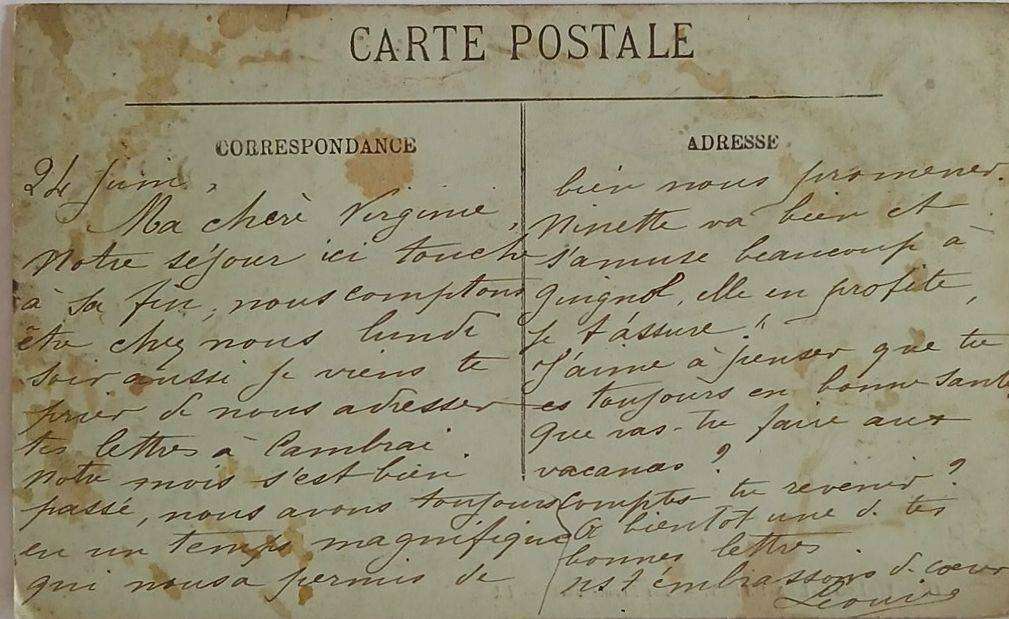 CARTE POSTALE
CORRESPONDANCE
24 juin,
Ma chère Virginie,
Notre séjour ici touche
à sa fin, nous comptons
être chez nous lundi
soir aussi je viens te
prier de nous adresser
tes lettres à Cambrai.
Notre mois s'est bien
passé, nous avons toujours
eu un temps magnifique
qui nous a permis de
ADRESSE
bien nous promener.
Ninette va bien et
s'amuse beaucoup à
guignol, elle en profite,
je t'assure !
J'aime à penser que tu
es toujours en bonne santé
Que vas-tu faire aux
vacances ?
Comptes tu revenir ?
A bientôt une de tes
bonnes lettres
ns t'embrassons de cœur
Léonie